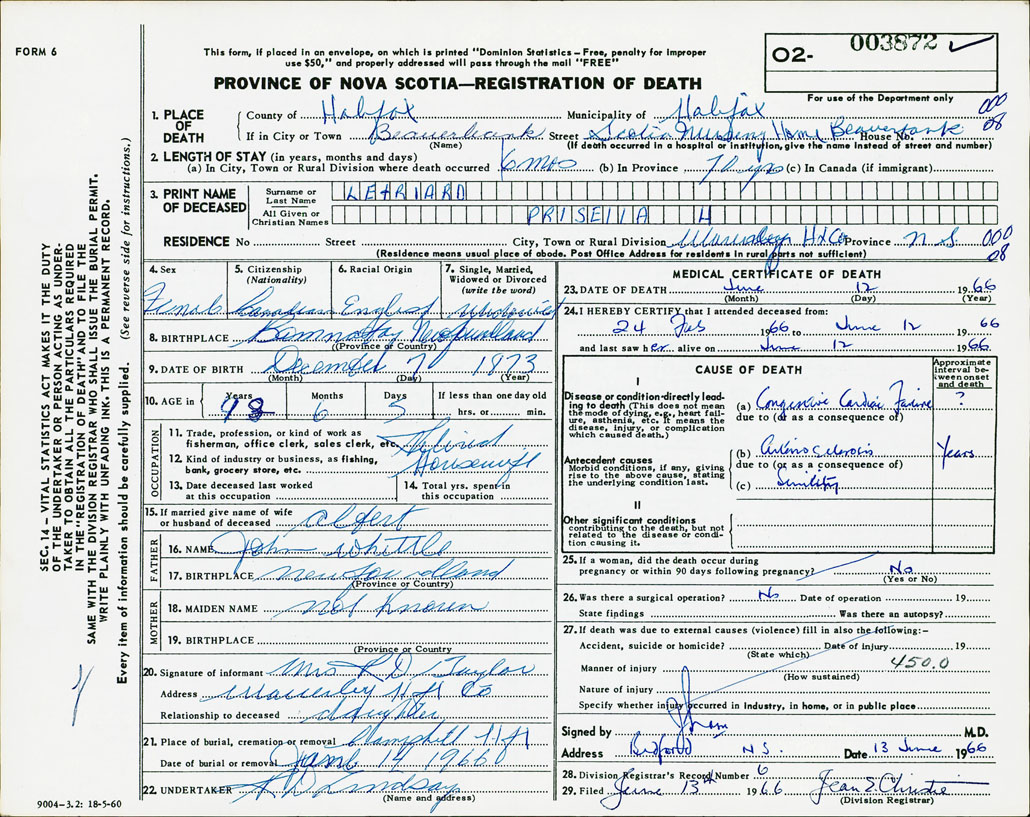 FORM 6
This form, if placed in an envelope, on which is printed "Dominion Statistics – Free, penalty for improper
use $50," and properly addressed will pass through the mail "FREE"
PROVINCE OF NOVA SCOTIA—REGISTRATION OF DEATH
O2- 003872
For use of the Department only
000
08
1. PLACE OF DEATH
County of Halifax Municipality of Halifax
If in City or Town Beaverbank Street Scotia Nursing Home Beaverbank House No.
(Name) (If death occurred in a hospital or institution, give the name instead of street and number)
2. LENGTH OF STAY (in years, months and days)
(a) In City, Town or Rural Division where death occurred 6 mos (b) In Province 70 yrs (c) In Canada (if immigrant)
3. PRINT NAME OF DECEASED
Surname or Last Name LETRIARD
All Given or Christian Names PRISELLA H
RESIDENCE No Street City, Town or Rural Division Waverley Hx Co Province N.S. 000
08
(Residence means usual place of abode. Post Office Address for residents in rural parts not sufficient)
4. Sex 5. Citizenship (Nationality) 6. Racial Origin 7. Single, Married, Widowed or Divorced (write the word)
Female Canadian English Widowed
8. BIRTHPLACE Newfoundland
(Province or Country)
9. DATE OF BIRTH December 7 1873
(Month) (Day) (Year)
10. AGE in Years Months Days If less than one day old
6 5 hrs. or min.
OCCUPATION
11. Trade, profession, or kind of work as
fisherman, office clerk, sales clerk, etc. Retired
12. Kind of industry or business, as fishing,
bank, grocery store, etc. Housewife
13. Date deceased last worked
at this occupation
14. Total yrs. spent in
this occupation
15. If married give name of wife
or husband of deceased Albert
FATHER
16. NAME John Whittle
17. BIRTHPLACE Newfoundland
(Province or Country)
MOTHER
18. MAIDEN NAME Not Known
19. BIRTHPLACE
(Province or Country)
20. Signature of informant Mrs R D Taylor
Address Waverley Hfx Co
Relationship to deceased daughter
21. Place of burial, cremation or removal
Date of burial or removal June 14 1966
22. UNDERTAKER Lindsay
(Name and address)
9004–3.2: 18-5-60
MEDICAL CERTIFICATE OF DEATH
23. DATE OF DEATH June 12 1966
(Month) (Day) (Year)
24. I HEREBY CERTIFY that I attended deceased from:
24 Feb 1966 to June 12 1966
and last saw her alive on June 12 1966
CAUSE OF DEATH
Approximate interval between onset and death
I
Disease or condition directly leading to death (This does not mean the mode of dying, e.g., heart failure, asthenia, etc. It means the disease, injury, or complication which caused death.)
(a) Congestive Cardiac Failure ?
due to (or as a consequence of)
Antecedent causes
Morbid conditions, if any, giving rise to the above cause, stating the underlying condition last.
(b) Arteriosclerosis Years
due to (or as a consequence of)
(c) Senility
II
Other significant conditions
contributing to the death, but not related to the disease or condition causing it.
25. If a woman, did the death occur during
pregnancy or within 90 days following pregnancy? No
(Yes or No)
26. Was there a surgical operation? No Date of operation 19
State findings Was there an autopsy?
27. If death was due to external causes (violence) fill in also the following:–
Accident, suicide or homicide? Date of injury 19
(State which) 450.0
Manner of injury
(How sustained)
Nature of injury
Specify whether injury occurred in Industry, in home, or in public place
Signed by M.D.
Address Bedford N.S. Date 13 June 1966
28. Division Registrar's Record Number 6
29. Filed June 13th 1966 Jean E Christie
(Division Registrar)
SEC. 14 – VITAL STATISTICS ACT MAKES IT THE DUTY
OF THE UNDERTAKER OR PERSON ACTING AS UNDER-
TAKER TO OBTAIN ALL THE PARTICULARS REQUIRED
IN THE "REGISTRATION OF DEATH" AND TO FILE THE
SAME WITH THE DIVISION REGISTRAR WHO SHALL ISSUE THE BURIAL PERMIT.
WRITE PLAINLY WITH UNFADING INK. THIS IS A PERMANENT RECORD.
Every item of information should be carefully supplied. (See reverse side for instructions.)